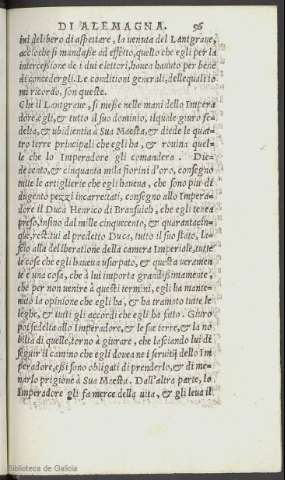 DI ALEMAGNA. 56
ini delibero di aspettare, la venuta del Lantgraue,
acciò che si mandasse ad effetto, quello che egli per la
intercessione de i dui elettori, hauea hauuto per bene
di concedergli. Le conditioni generali, delle quali io
mi ricordo, son queste.
Che il Lantgraue, si messe nelle mani dello Impera
dore, egli, & tutto il suo dominio, il quale giuro fe-
deltà, & ubidientia à Sua Maestà, & diede le quat-
tro terre principali che egli ha, & rouina quel-
le che lo Imperadore gli comandera. Die-
de cento, & cinquanta mila fiorini d'oro, consegno
tutte le artiglierie che egli haueua, che sono piu di
dugento pezzi incarrettati, consegno allo Impera-
dore il Duca Henrico di Bransuich, che egli tenea
preso, insino dal mille cinquecento, & quarantacin-
que, restitui al predetto Duca, tutto il suo stato, la-
scio alla deliberatione della camera Imperiale, tutte
le cose che egli haueua usurpato, & questa ueramen
te è una cosa, che à lui importa grandissimamente,
che per non uenire à questi termini, egli ha mante-
nuto la opinione che egli ha, & ha tramato tutte le
leghe, & tutti gli accordi che egli ha fatto. Giuro
poi fedeltà allo Imperadore, & le sue terre, & la no
biltà di quelle, torno à giurare, che lasciando lui di
seguir il camino che egli douea ne i seruitij dello Im
peradore, essi sono obligati di prenderlo, & di me-
narlo prigione à Sua Maestà. Dall'altra parte, lo
Imperadore gli fa merce della uita, & gli leua il
Biblioteca de Galicia